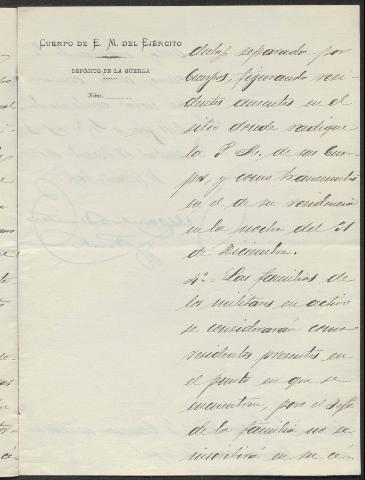 CUERPO DE E. M. DEL EJÉRCITO
DEPÓSITO DE LA GUERRA
Núm.
dulas separado por
Cuerpos, figurando resi-
dentes ausentes en el
sitio donde radique
la P. M. de sus Cuer-
pos, y como transeuntes
en el de su residencia
en la noche del 31
de Diciembre.
4º - Las familias de
los militares en activo
se considerarán como
residentes presentes en
el punto en que se
encuentren, pero el Jefe
de la familia no se
inscribirá en su cé-